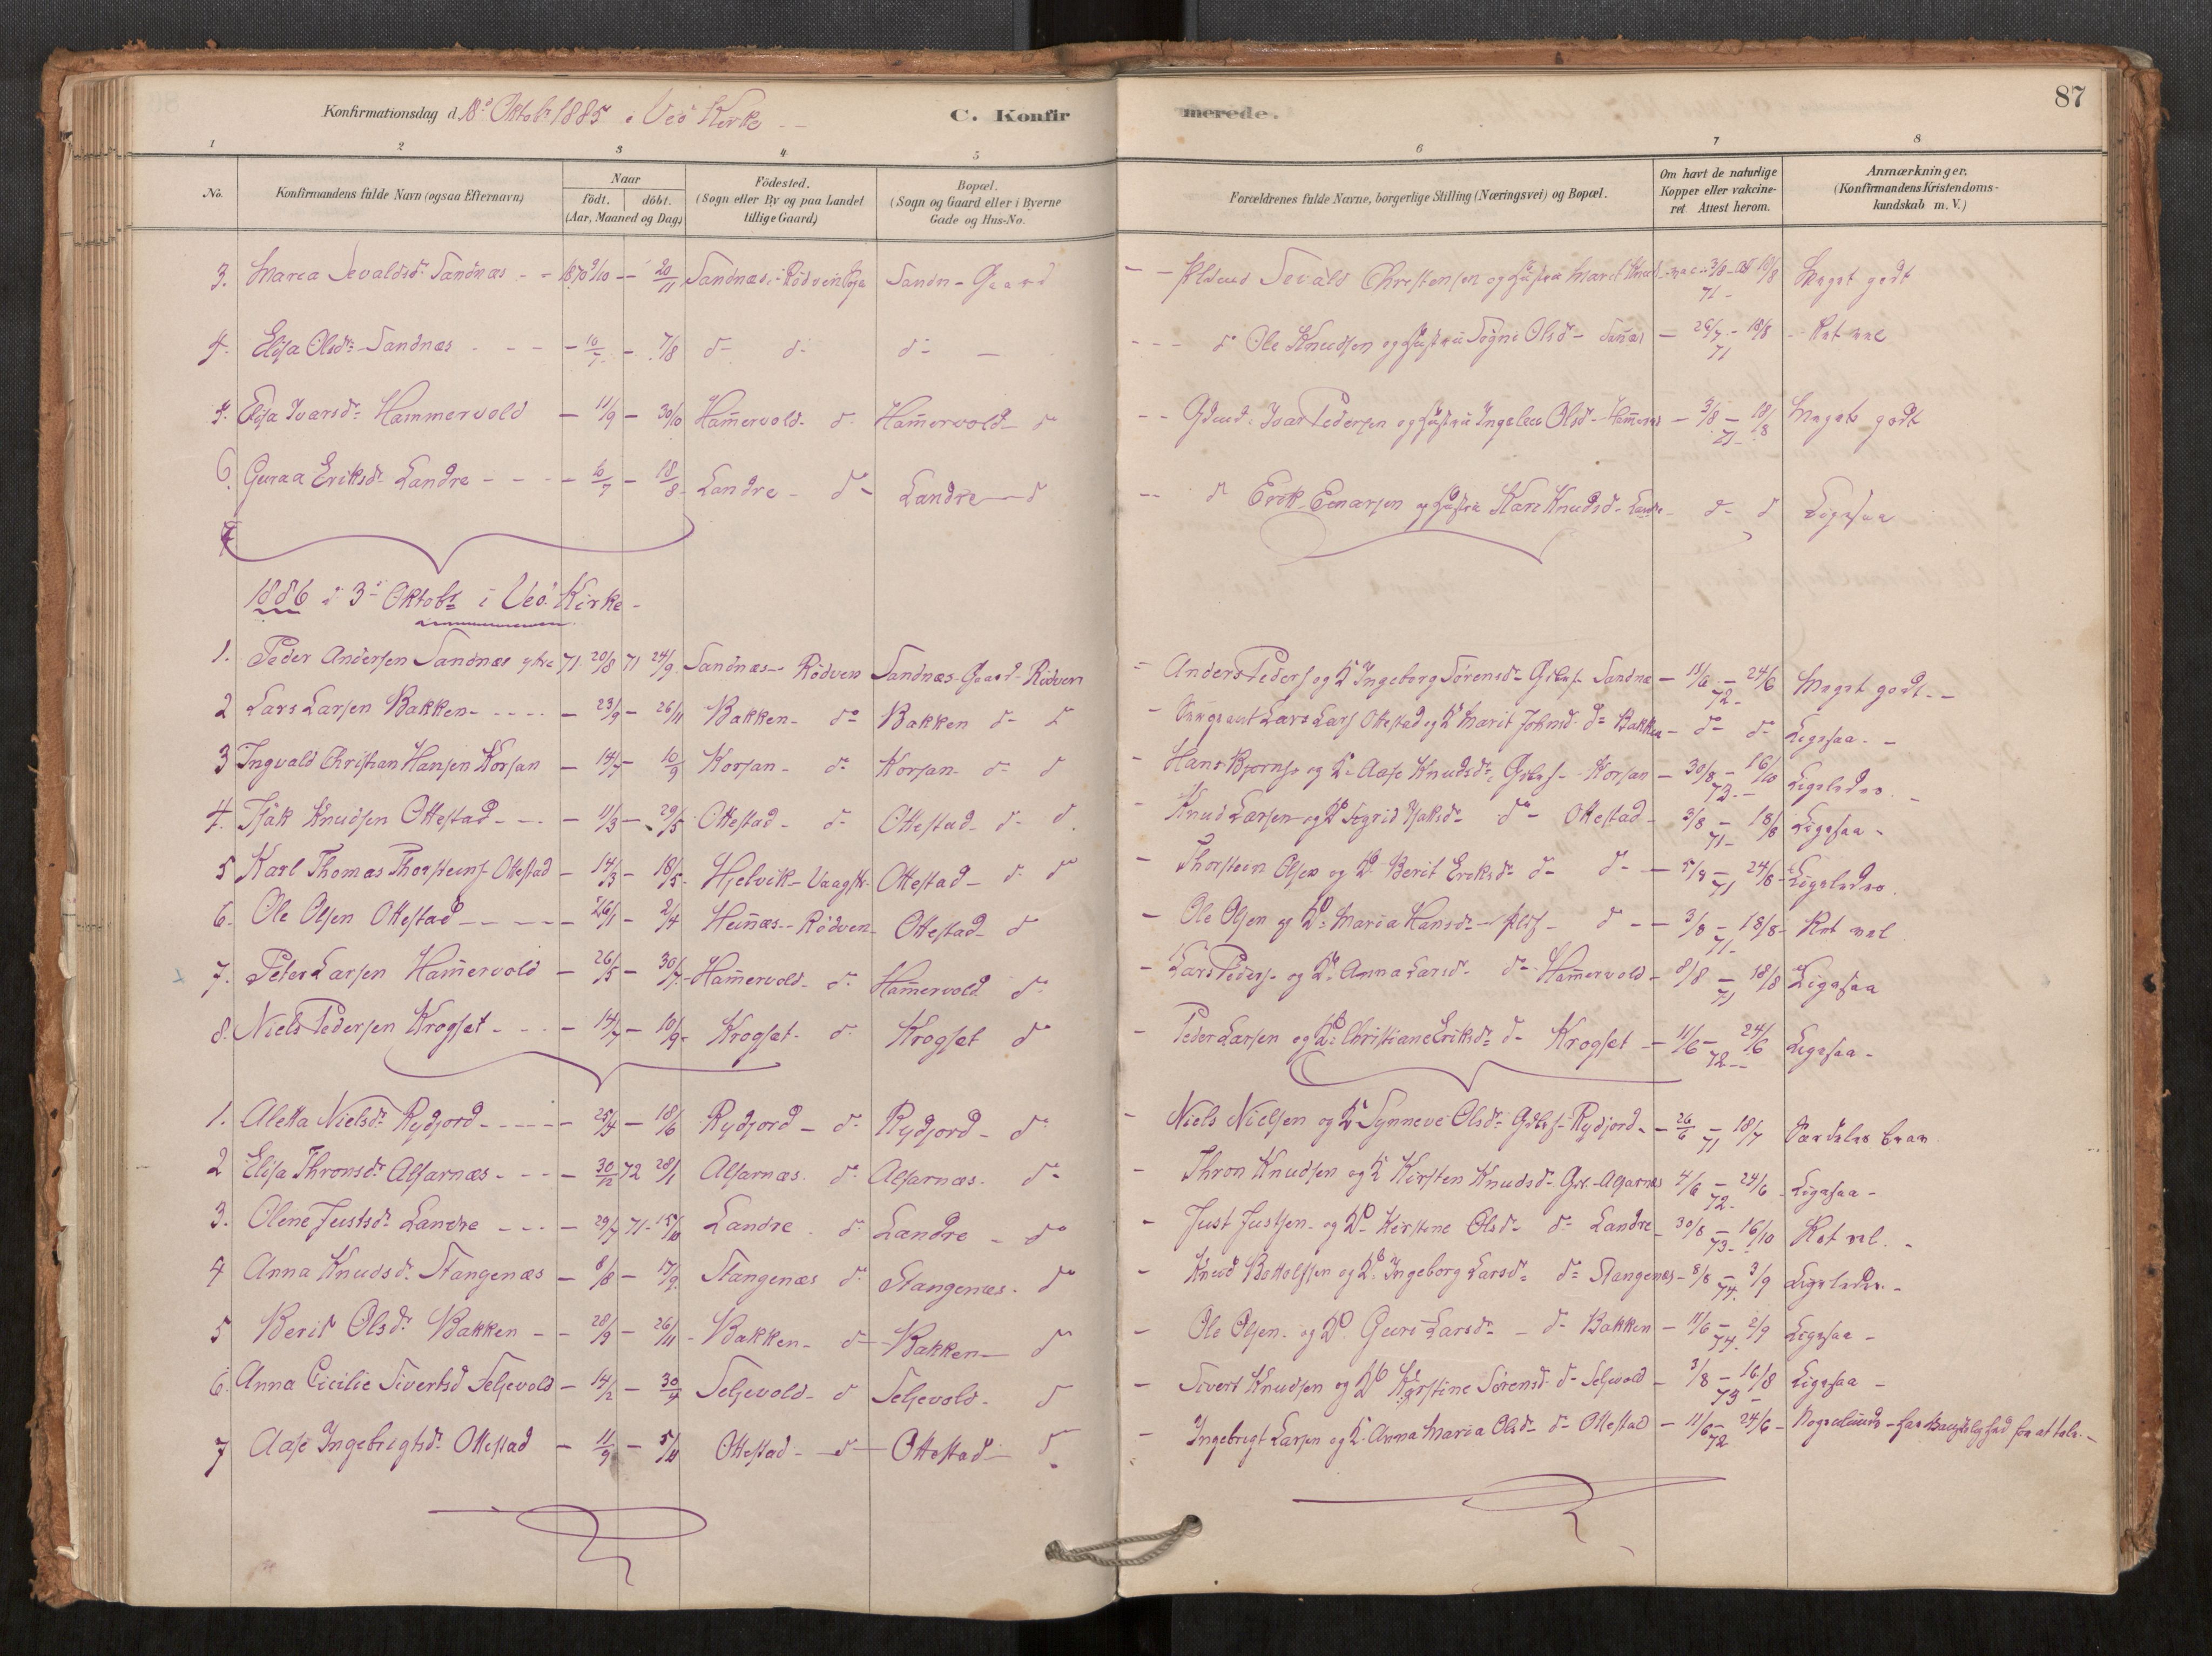 87
Konfirmationsdag d. 18de Oktobr 1885 i Veö Kirke
C. Konfirmerede.
1 2 3 4 5 6 7 8
No. Konfirmandens fulde Navn (ogsaa Efternavn) Naar födt. döbt. (Aar, Maaned og Dag.) Födested. (Sogn eller By og paa Landet tillige Gaard) Bopæl. (Sogn og Gaard eller i Byerne Gade og Hus-No. Forældrenes fulde Navne, borgerlige Stilling (Næringsvei) og Bopæl. Om havt de naturlige Kopper eller vakcineret. Attest herom. Anmærkninger. (Konfirmandens Kristendomskundskab m. V.)
3. Maria Sevaldsd. Sandnæs - - 1870 9/10 - - 20/11 Sandnæs i Rödven Sandn - Gaard - - Sevald Christensen og Hustru Marit 3/8 71 - 18/8 Meget godt
4. Elisa Olsdr Sandnæs - - - 10/7 - 7/8 do do do - - - - do Ole Knudsen og Hustru Signe Olsd - - 26/7 71 - 18/8 - Ret vel
5. Elisa Ivarsdr Hammervold - 11/9 - 30/10 Ham̄ervold - do Ham̄ervold - do - - Gdmd. Ivar Pedersen og Hustru Ingeleu Olsd - - 3/8 71 - 18/8 Meget godt
6. Guraa Eriksd. Landre - - - 6/7 - 18/8 - Landre - do - Landre - do - - do Erik Einarsen og Hustru Kari Knudsd. Landre - do - do Ligesaa
7
1886 d 3die Oktobr i Veö Kirke -
1. Peder Andersen Sandnæs ytre 71 20/8 71 24/9 Sandnæs - Rödven Sandnæs - Gaard - Rödven - Anders Peders og K Ingeborg Sörensdr Sandnæ - 11/6 72 - 24/6 Meget godt - -
2 Lars Larsen Bakken - - - - 23/9 - 26/11 Bakken - do Bakken do - do - Lars Lars Ottestad og K Marit Johnsd. do Bakken - do - do Ligesaa -
3 Ingvald Christian Hansen Korsan - 14/7 - 10/9 Korsan - do Korsan - do do - Hans Bjørns og K Aase Knudsdr Korsan - 30/8 73 - 16/10 Ligeledes -
4. Isak Knudsen Ottestad - - - 11/3 - 29/5 Ottestad - do Ottestad - do - do - Knud Larsen og K Sigrid Isaksdr do - Ottestad - 3/8 71 - 18/8 Ligesaa -
5 Karl Thomas Thorsteins Ottestad - 14/3 - 18/5 - Hjelvik - Vaagstr. Ottestad - do do - Thorstein Olsen og K Berit Eriksdr do - do - - 5/8 71 24/8 - Ligeledes.
6. Ole Olsen Ottestad - - - 26/1 - 2/4 Hein̄æs - Rödven - Ottestad - do - Ole Olsen og K Maria Hansdr - do - - 3/8 71 - 18/8 - Ret vel
7. Peter Larsen Ham̄ervold - 26/5 - 30/7 - Ham̄ervold - do Ham̄ervold do - Lars Peders og K Anna Larsd. do Ham̄ervold - 8/8 71 - 18/8 Ligesaa
8. Niels Pedersen Krogset - - - 14/7 - 10/9 - Krogset - do Krogset do - Peder Larsen og K Christiane Eriksdr do - Krogset - 11/6 72 - 24/6 Ligesaa -
1. Aletta Nielsdr Rydjord - - - - 25/4 - 18/6 Rydjord - do Rydjord - do - Niels Nielsen og K Synneve Olsdr Rydjord - - 26/6 71 - 18/7 Særdeles bra
2 Elisa Thronsdr Alfarnæs - - - 30/12 72 28/1 Alfarnæs. do Alfarnæs. do - Thron Knudsen og K Kirsten Knudsdr Alfarnæs 4/6 72 - 24/6 - Ligesaa -
3. Olene Justsdr Landre - - - 29/7 71 - 15/10 Landre do Landre - do - Just Justsen - og K Kirstine Olsd - do Landre - 30/8 73 - 16/10 Ret vel. -
4 Anna Knudsdr Stangenæs - 8/8 - 17/9 Stangenæs do Stangenæs - do - Knud Bottolfsen og K Ingeborg Larsdr do Stangenæs - 8/8 74 3/9 Ligeledes. -
5 Berit Olsdr Bakken - - 28/9 - 26/11 - Bakken - do - Bakken - do - Ole Olsen - og K Guri Larsdr - do Bakken - 11/6 74 2/9 Ligesaa -
6. Anna Cicilie Sivertsd Seljevold - 14/2 - 30/4 Seljevold - do Seljevold - do - Sivert Knudsen og K Kirstine Sörensd. do Seljevold - 3/8 73 - 16/8 Ligesaa -
7 Aase Ingebrigtsdr Ottestad - 11/9 - 5/11 Ottestad - do - Ottestad do - Ingebrigt Larsen og K. Anna Maria Olsdr do - Ottestad - 11/6 72 24/6 - Nogenlunde - har Vanskelighed for at tale. -